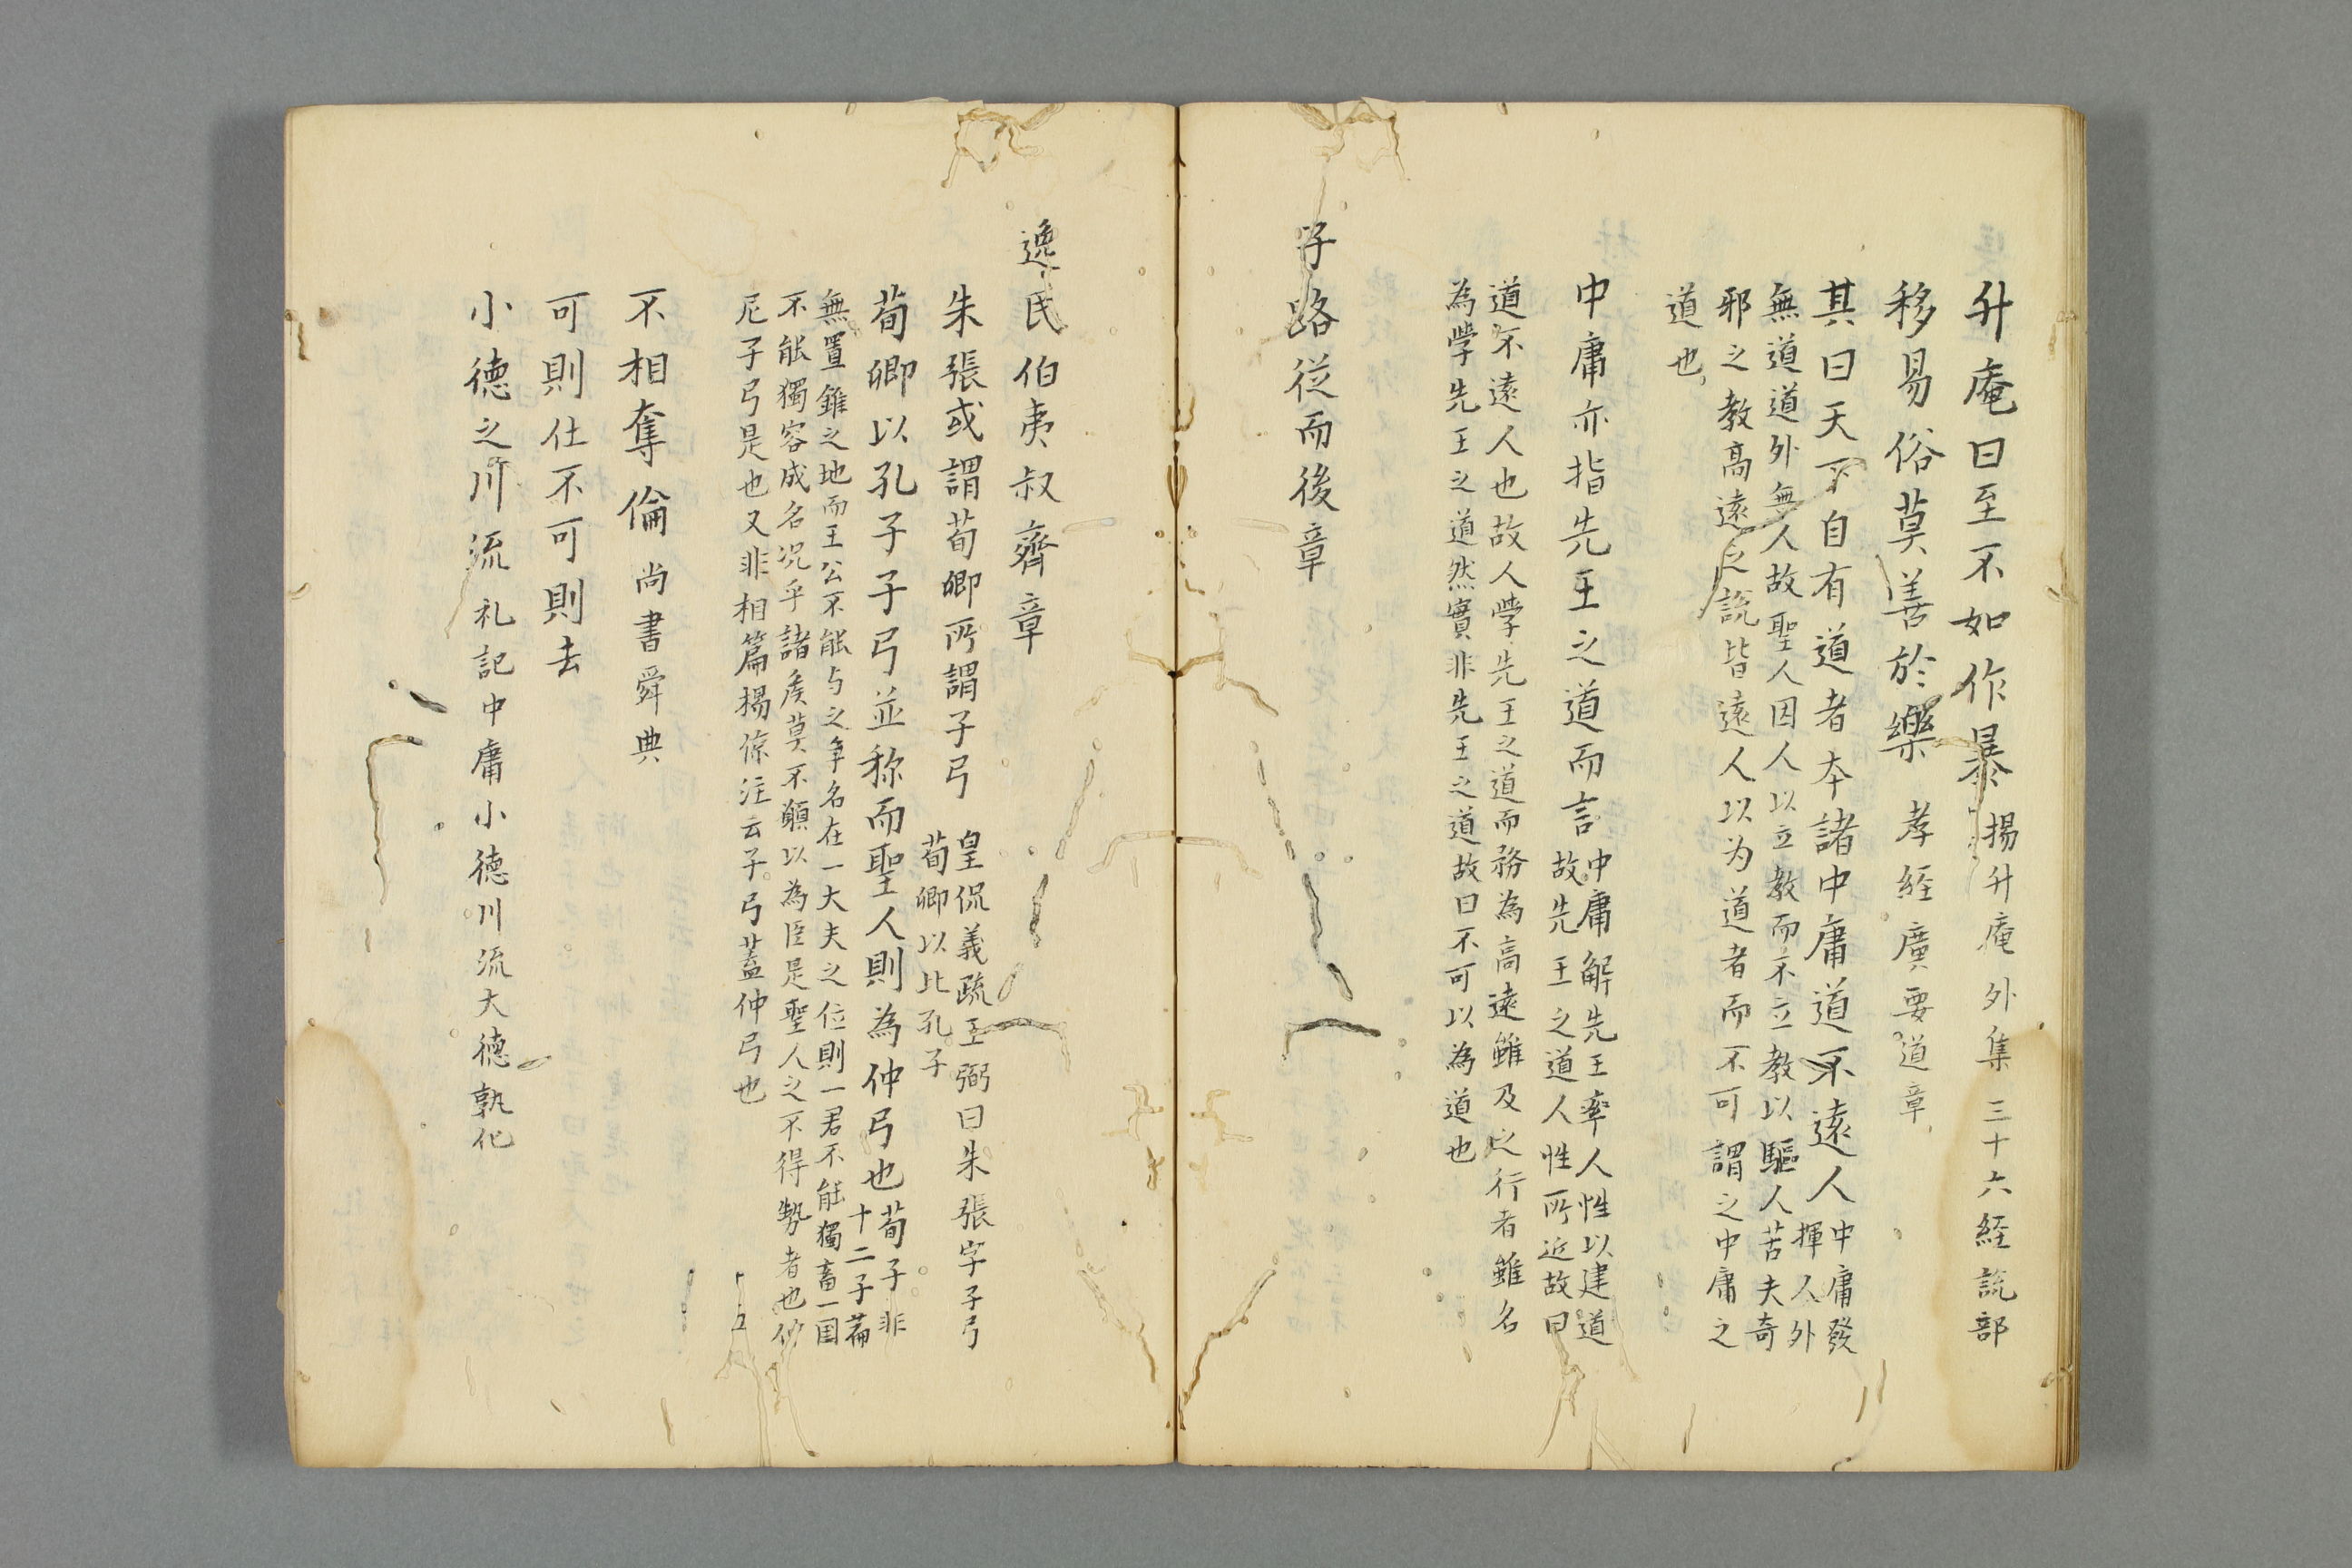 升庵曰至不如作暴 揚升庵外集三十六経説部
移易俗莫善於樂 孝経廣要道章
其曰天下自有道者本諸中庸道不遠人 中庸發
揮人外
無道道外無人故聖人因人以立教而不立教以驅人苦夫奇
邪之教高遠之説皆遠人以为道者而不可謂之中庸之
道也
中庸亦指先王之道而言 中庸解先王率人性以建道
故先王之道人性所近故曰
道不遠人也故人學先王之道而務為高遠雖及之行者雖名
為學先王之道然實非先王之道故曰不可以為道也
子路從而後章
逸民伯夷叔齊章
朱張或謂荀卿所謂子弓 皇侃義疏王弼曰朱張字子弓
荀卿以比孔子
荀卿以孔子子弓並称而聖人則為仲弓也 荀子非
十二子萹
無置錐之地而王公不能与之争名在一大夫之位則一君不能獨畜一国
不能獨容成名况乎諸矦莫不願以為臣是聖人之不得勢者也仲
尼子弓是也又非相篇揚倞注云子弓蓋仲弓也
不相奪倫 尚書舜典
可則仕不可則去
小德之川流 礼記中庸小德川流大德孰化
五